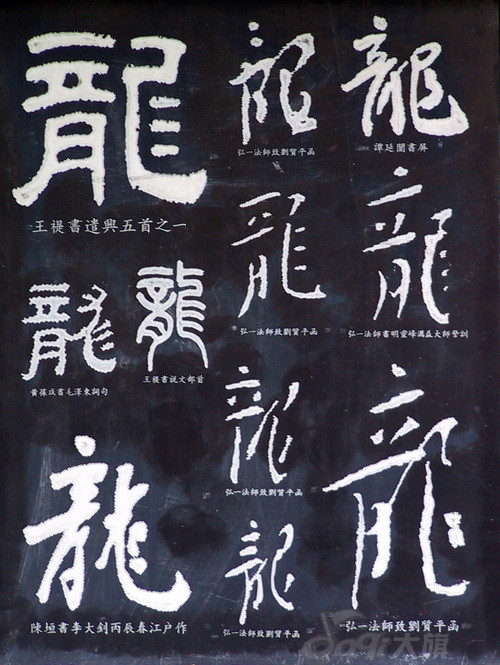 龍
王禔書遣興五首之一
龍
弘一法師致劉質平函
龍
譚延闓書屏
龍
弘一法師致劉質平函
龍
弘一法師書明靈峰蕅益大師警訓
龍
黃葆戉書毛澤東詞句
龍
王禔書説文部首
龍
弘一法師致劉質平函
龍
弘一法師致劉質平函
龍
陳垣書李大釗丙辰春江戶作
龍
弘一法師致劉質平函
大旗